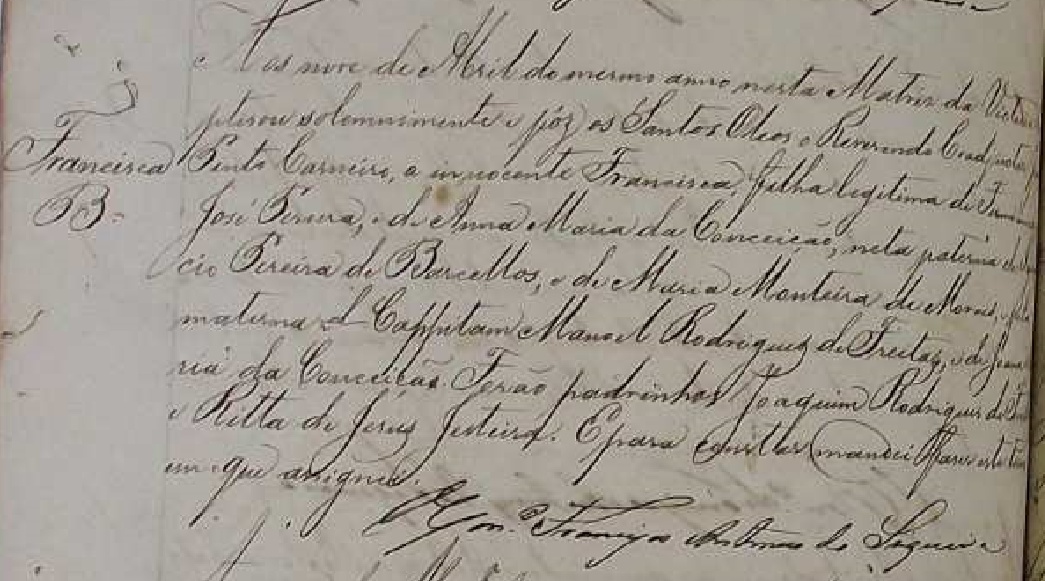 Aos nove de Abril do mesmo anno nesta Matriz da Victoria
ptisou solemnimente e pôz os Santos Oleos o Reverendo Coadjuctor
Francisca Pinto Carneiro, a innocente Francisca, filha legitima de
B. José Pereira, e de Anna Maria da Conceição, neta paterna de
cio Pereira de Barcellos, e de Maria Monteira de Moraes, e pela
materna d Cappitam Manoel Rodriguez de Freitas, e de Joana
ria da Conceição. Forão padrinhos Joaquim Rodrigues de
e Ritta de Jesus. E para constar mandei fazer este
em que asignei.
Francisco Antunes de Siqueira